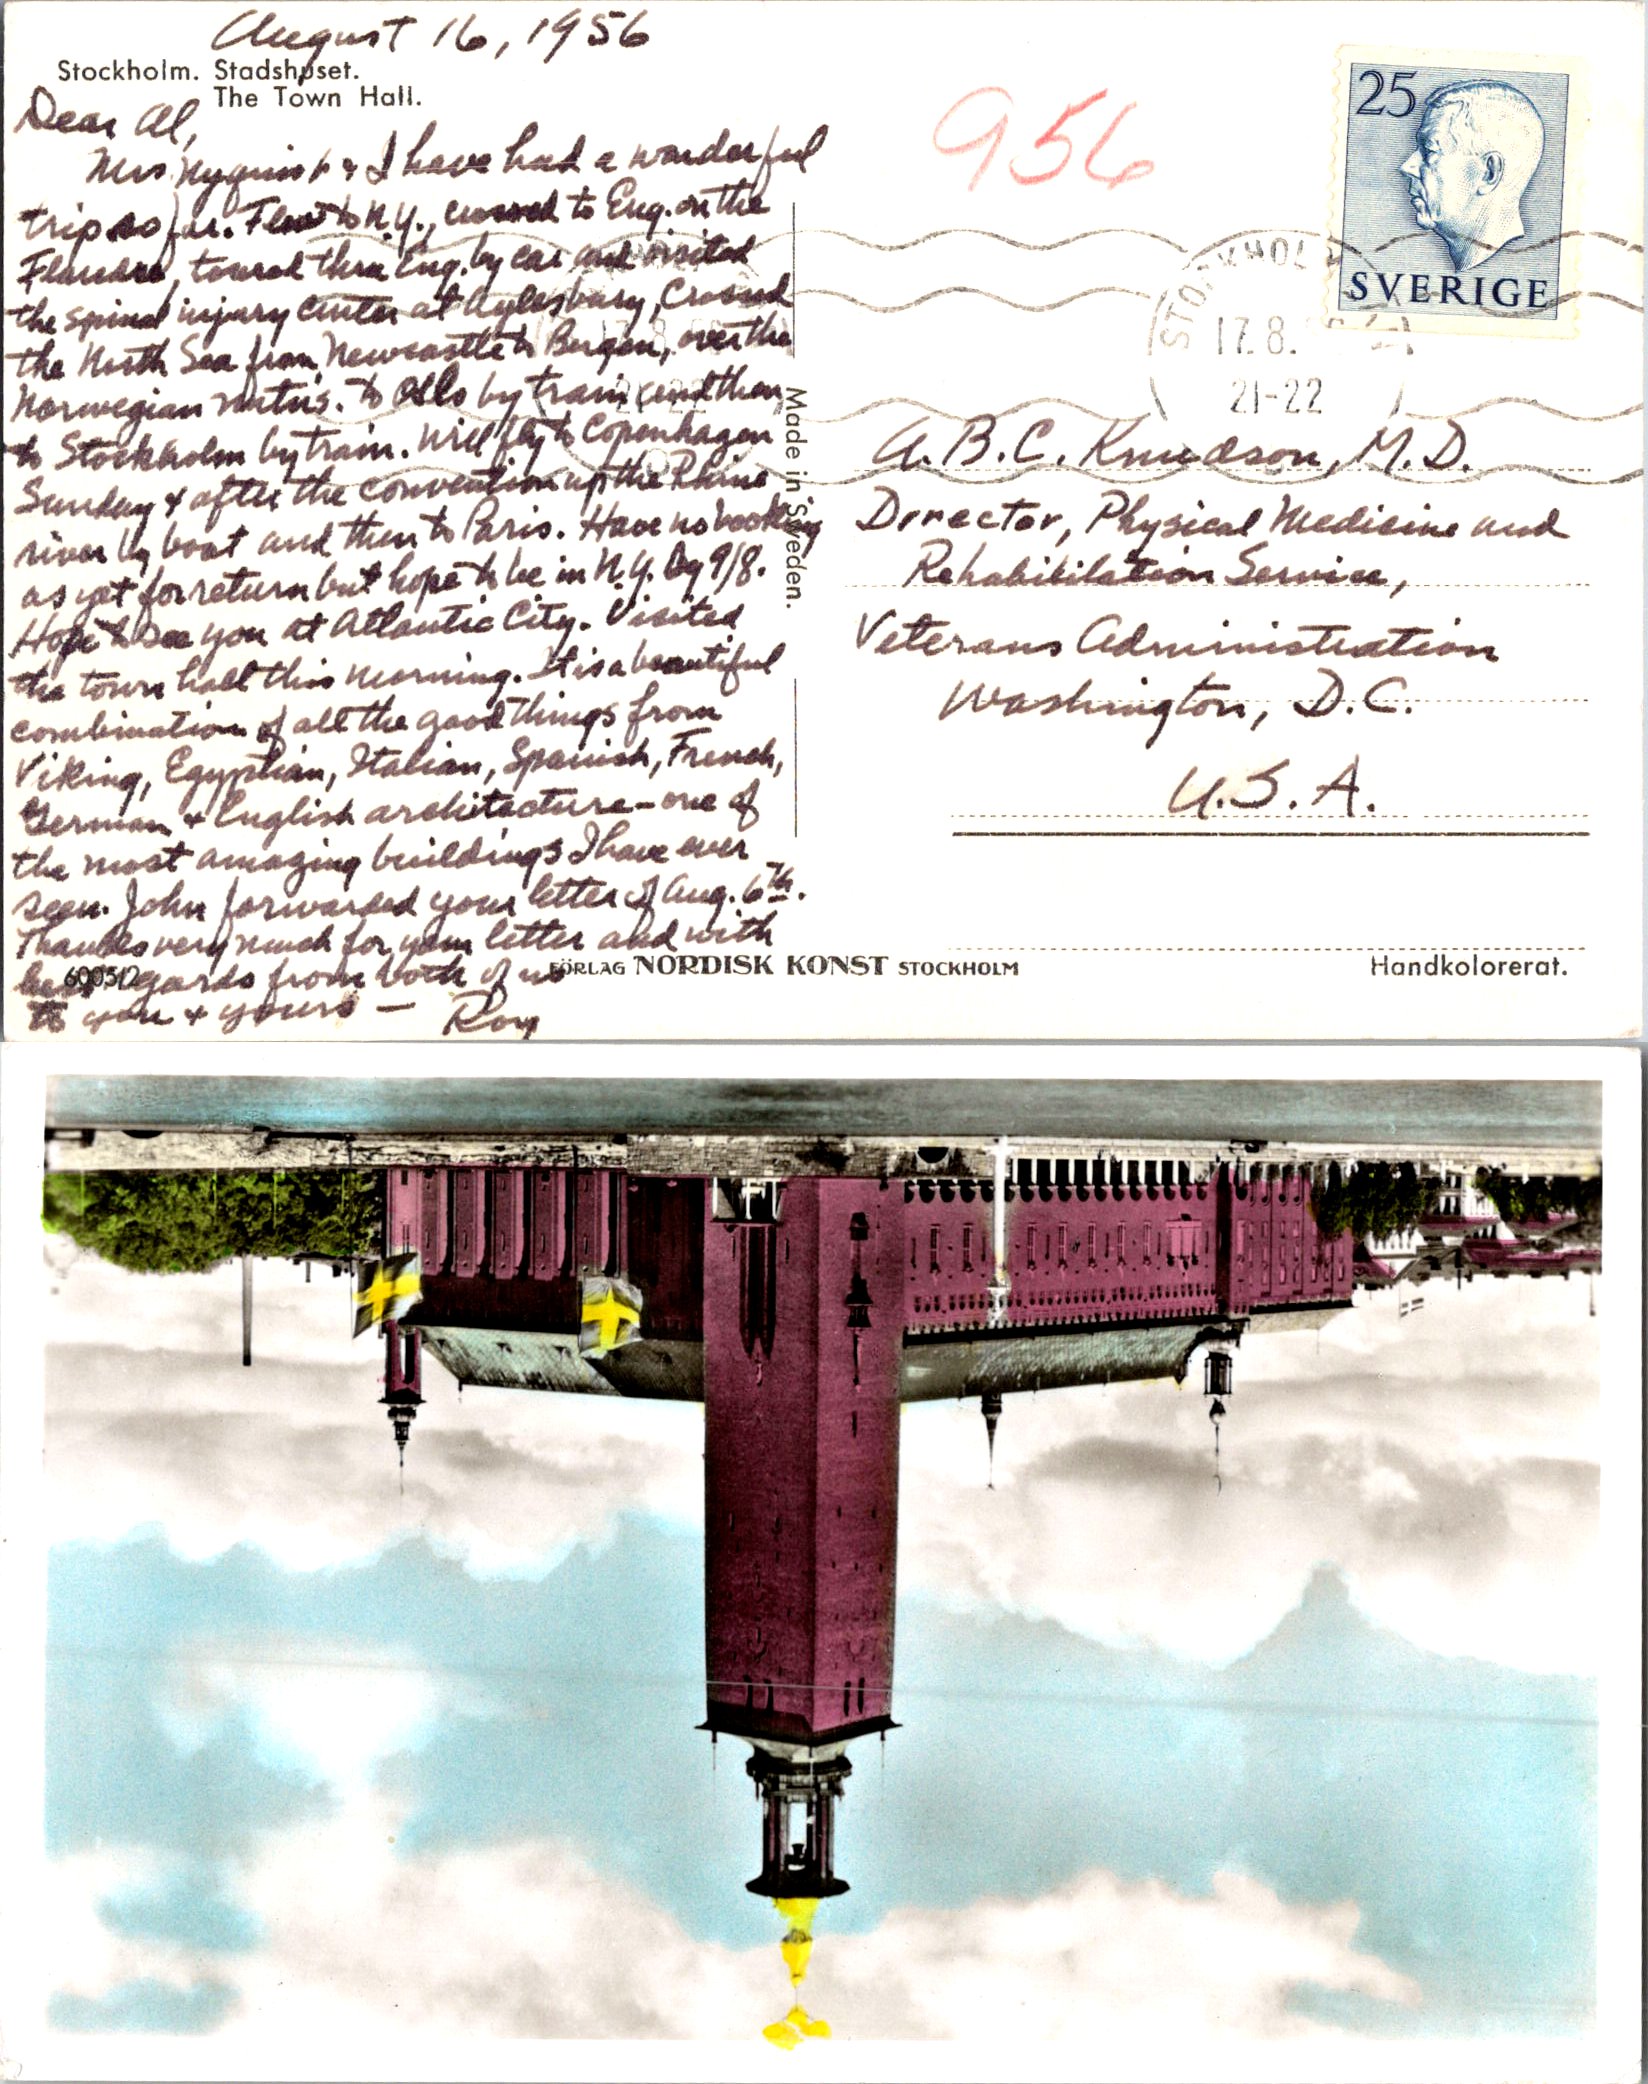 August 16, 1956
Stockholm. Stadshuset.
The Town Hall.
Dear Al,
Mrs. Nyquist & I have had a wonderful
trip so far. Flew to N.Y., crossed to Eng. on the
Flandre, toured thru Eng. by car and visited
the spinal injury center at Aylesbury, Crossed
the North Sea from Newcastle to Bergen, over the
Norwegian mtns. to Oslo by train and then
to Stockholm by train. Will fly to Copenhagen
Sunday & after the convention up the Rhine
river by boat and then to Paris. Have no booking
as yet for return but hope to be in N.Y. by 9/8.
Hope to see you at Atlantic City. Visited
the town hall this morning. It is a beautiful
combination of all the good things from
Viking, Egyptian, Italian, Spanish, French,
German & English architecture – one of
the most amazing buildings I have ever
seen. John forwarded your letter of Aug. 6th.
Thanks very much for your letter and with
best regards from both of us
to you & yours — Roy
600512
FÖRLAG NORDISK KONST STOCKHOLM
Made in Sweden.
956
25
SVERIGE
STOCKHOLM
17.8.
21-22
A.B.C. Knudson, M.D.
Director, Physical Medicine and
Rehabilitation Service,
Veterans Administration
Washington, D.C.
U.S.A.
Handkolorerat.